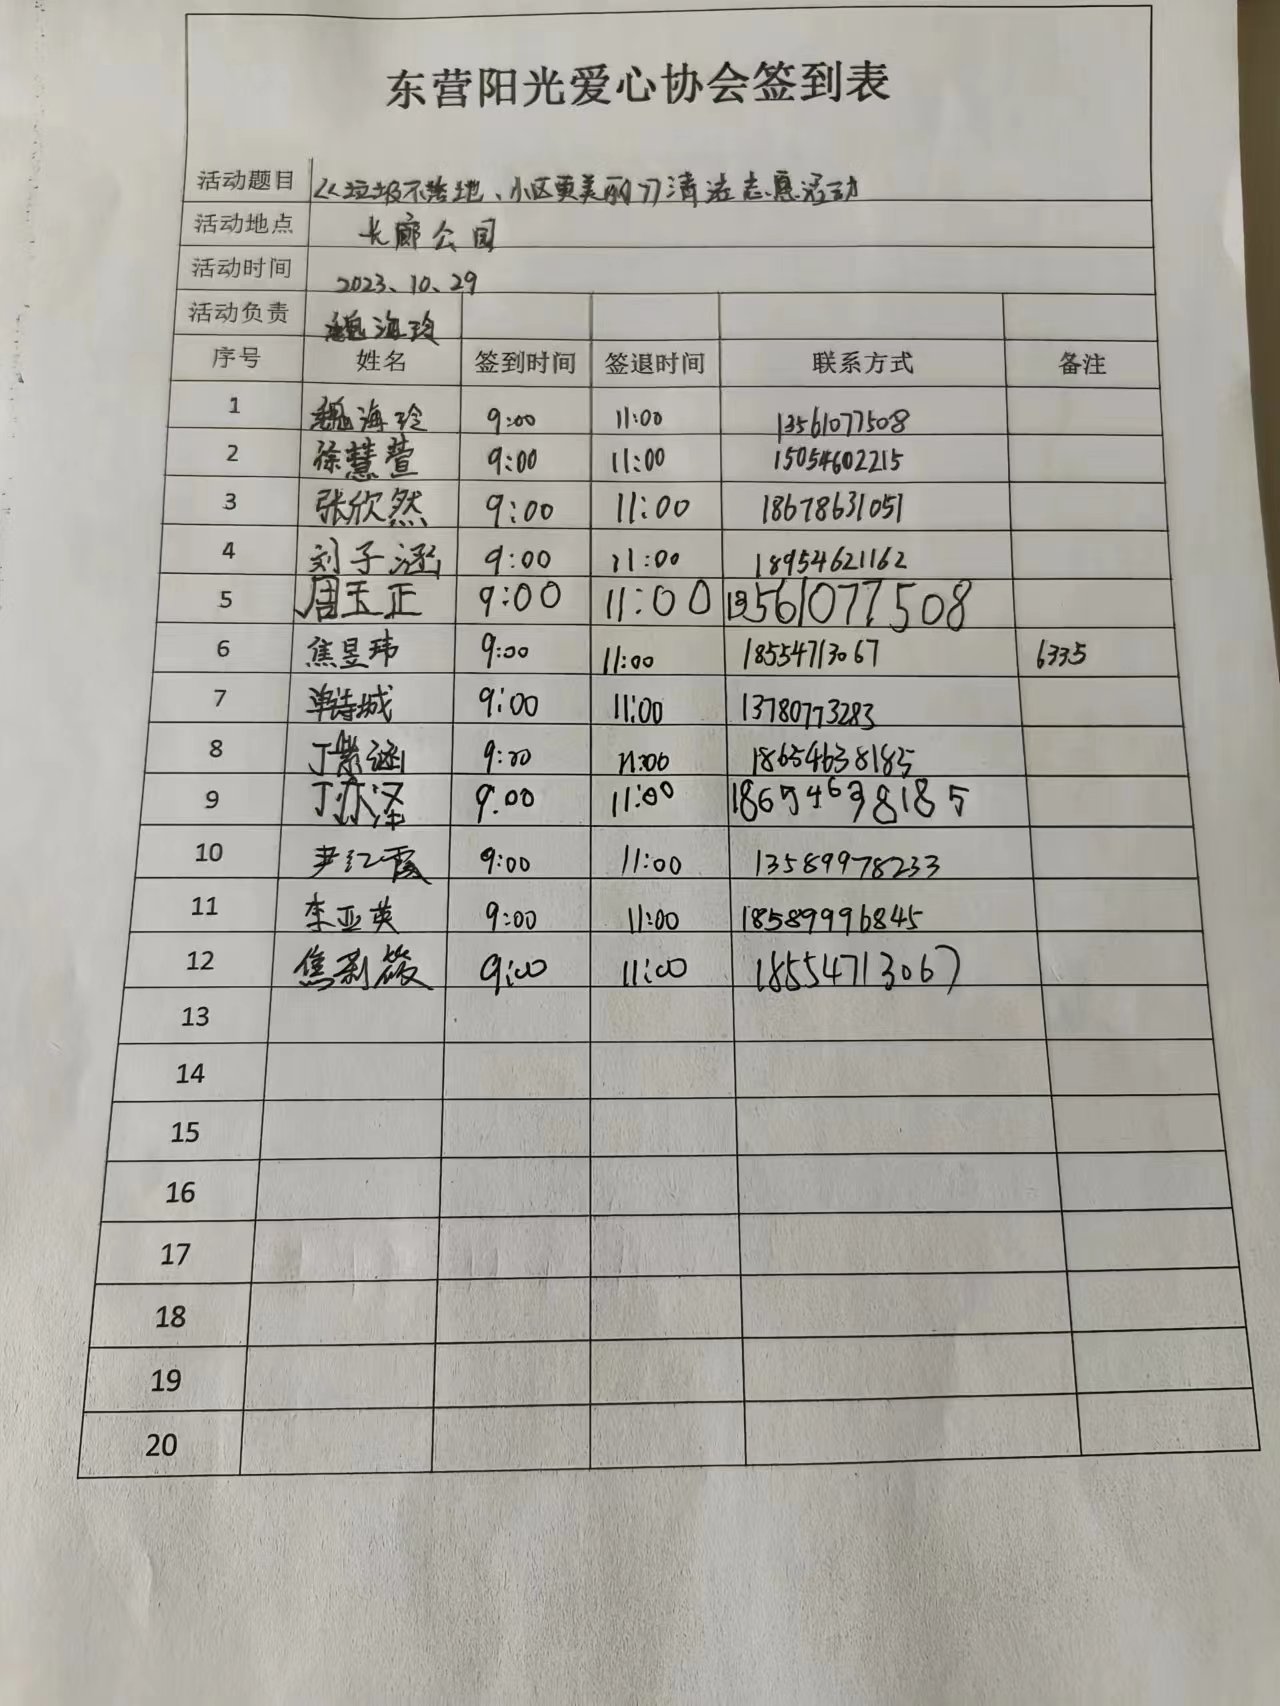 东营阳光爱心协会签到表
活动题目 《垃圾不落地、小区更美丽》清洁志愿活动
活动地点 长廊公园
活动时间 2023、10、29
活动负责 魏海玲
序号 姓名 签到时间 签退时间 联系方式 备注
1 魏海玲 9:00 11:00 13561077508
2 徐慧萱 9:00 11:00 15054602215
3 张欣然 9:00 11:00 18678631051
4 刘子涵 9:00 11:00 18954621162
5 周玉正 9:00 11:00 13561077508
6 焦昱玮 9:00 11:00 18554713067 6335
7 单诗城 9:00 11:00 13780773283
8 丁紫涵 9:00 11:00 18654638185
9 丁亦泽 9:00 11:00 18654638185
10 尹红霞 9:00 11:00 13589978233
11 李亚英 9:00 11:00 18589996845
12 焦 9:00 11:00 18554713067
13
14
15
16
17
18
19
20